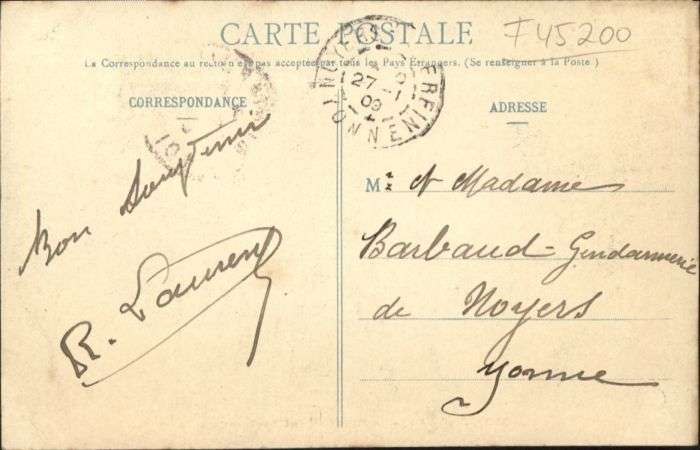 CARTE POSTALE
F45200
La Correspondance au recto n'est pas acceptée par tous les Pays Etrangers. (Se renseigner à la Poste)
CORRESPONDANCE
ADRESSE
27 -1
09
YONNE
Bon Souvenir
R. Laurent
M. et Madame
Barbaud - Gendarmerie
de Noyers
Yonne